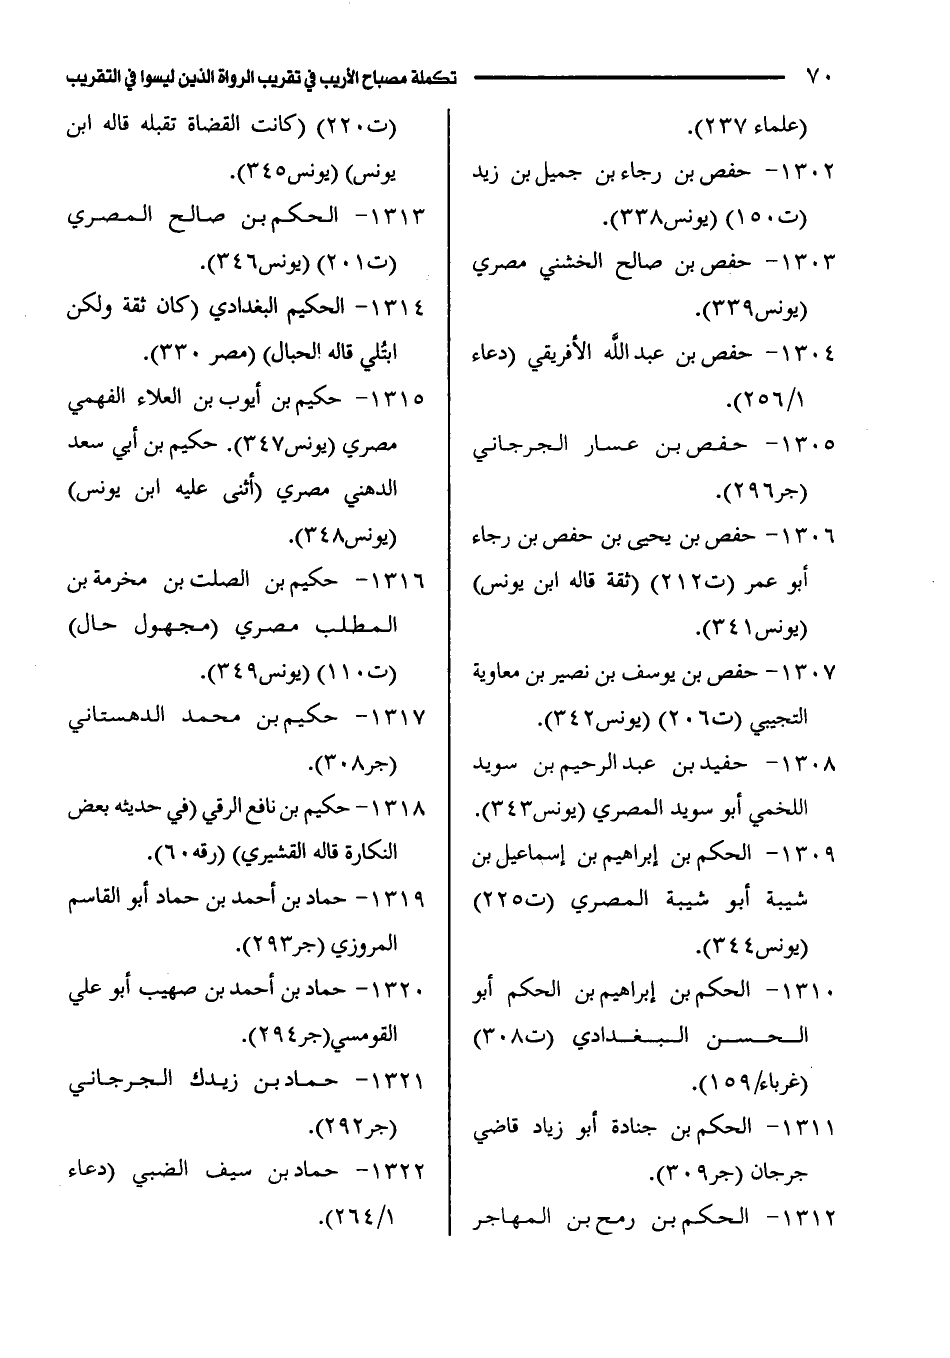 ٧٠ تكملة مصباح الأريب في تقريب الرواة الذين ليسوا في التقريب
(علماء ٢٣٧).
١٣٠٢- حفص بن رجاء بن جميل بن زيد
(ت١٥٠) (يونس٣٣٨).
١٣٠٣- حفص بن صالح الخشني مصري
(يونس٣٣٩).
١٣٠٤- حفص بن عبد الله الأفريقي (دعاء
٢٥٦/١).
١٣٠٥- حفص بن عسار الجرجاني
(جر٢٩٦).
١٣٠٦- حفص بن يحيى بن حفص بن رجاء
أبو عمر (ت٢١٢) (ثقة قاله ابن يونس)
(يونس٣٤١).
١٣٠٧- حفص بن يوسف بن نصير بن معاوية
التجيبي (ت٢٠٦) (يونس٣٤٢).
١٣٠٨- حفيد بن عبد الرحيم بن سويد
اللخمي أبو سويد المصري (يونس٣٤٣).
١٣٠٩- الحكم بن إبراهيم بن إسماعيل بن
شيبة أبو شيبة المصري (ت٢٢٥)
(يونس٣٤٤).
١٣١٠- الحكم بن إبراهيم بن الحكم أبو
الحسن البغدادي (ت٣٠٨)
(غرباء/١٥٩).
١٣١١- الحكم بن جنادة أبو زياد قاضي
جرجان (جر٣٠٩).
١٣١٢- الحكم بن رمح بن المهاجر
(ت٢٢٠) (كانت القضاة تقبله قاله ابن
يونس) (يونس٣٤٥).
١٣١٣- الحكم بن صالح المصري
(ت٢٠١) (يونس٣٤٦).
١٣١٤- الحكيم البغدادي (كان ثقة ولكن
ابتُلي قاله الحبال) (مصر ٣٣٠).
١٣١٥- حكيم بن أيوب بن العلاء الفهمي
مصري (يونس٣٤٧). حكيم بن أبي سعد
الدهني مصري (أثنى عليه ابن يونس)
(يونس٣٤٨).
١٣١٦- حكيم بن الصلت بن مخرمة بن
المطلب مصري (مجهول حال)
(ت١١٠) (يونس٣٤٩).
١٣١٧- حكيم بن محمد الدهستاني
(جر٣٠٨).
١٣١٨- حكيم بن نافع الرقي (في حديثه بعض
النكارة قاله القشيري) (رقه٦٠).
١٣١٩- حماد بن أحمد بن حماد أبو القاسم
المروزي (جر٢٩٣).
١٣٢٠- حماد بن أحمد بن صهيب أبو علي
القومسي(جر٢٩٤).
١٣٢١- حماد بن زيدك الجرجاني
(جر٢٩٢).
١٣٢٢- حماد بن سيف الضبي (دعاء
٢٦٤/١).